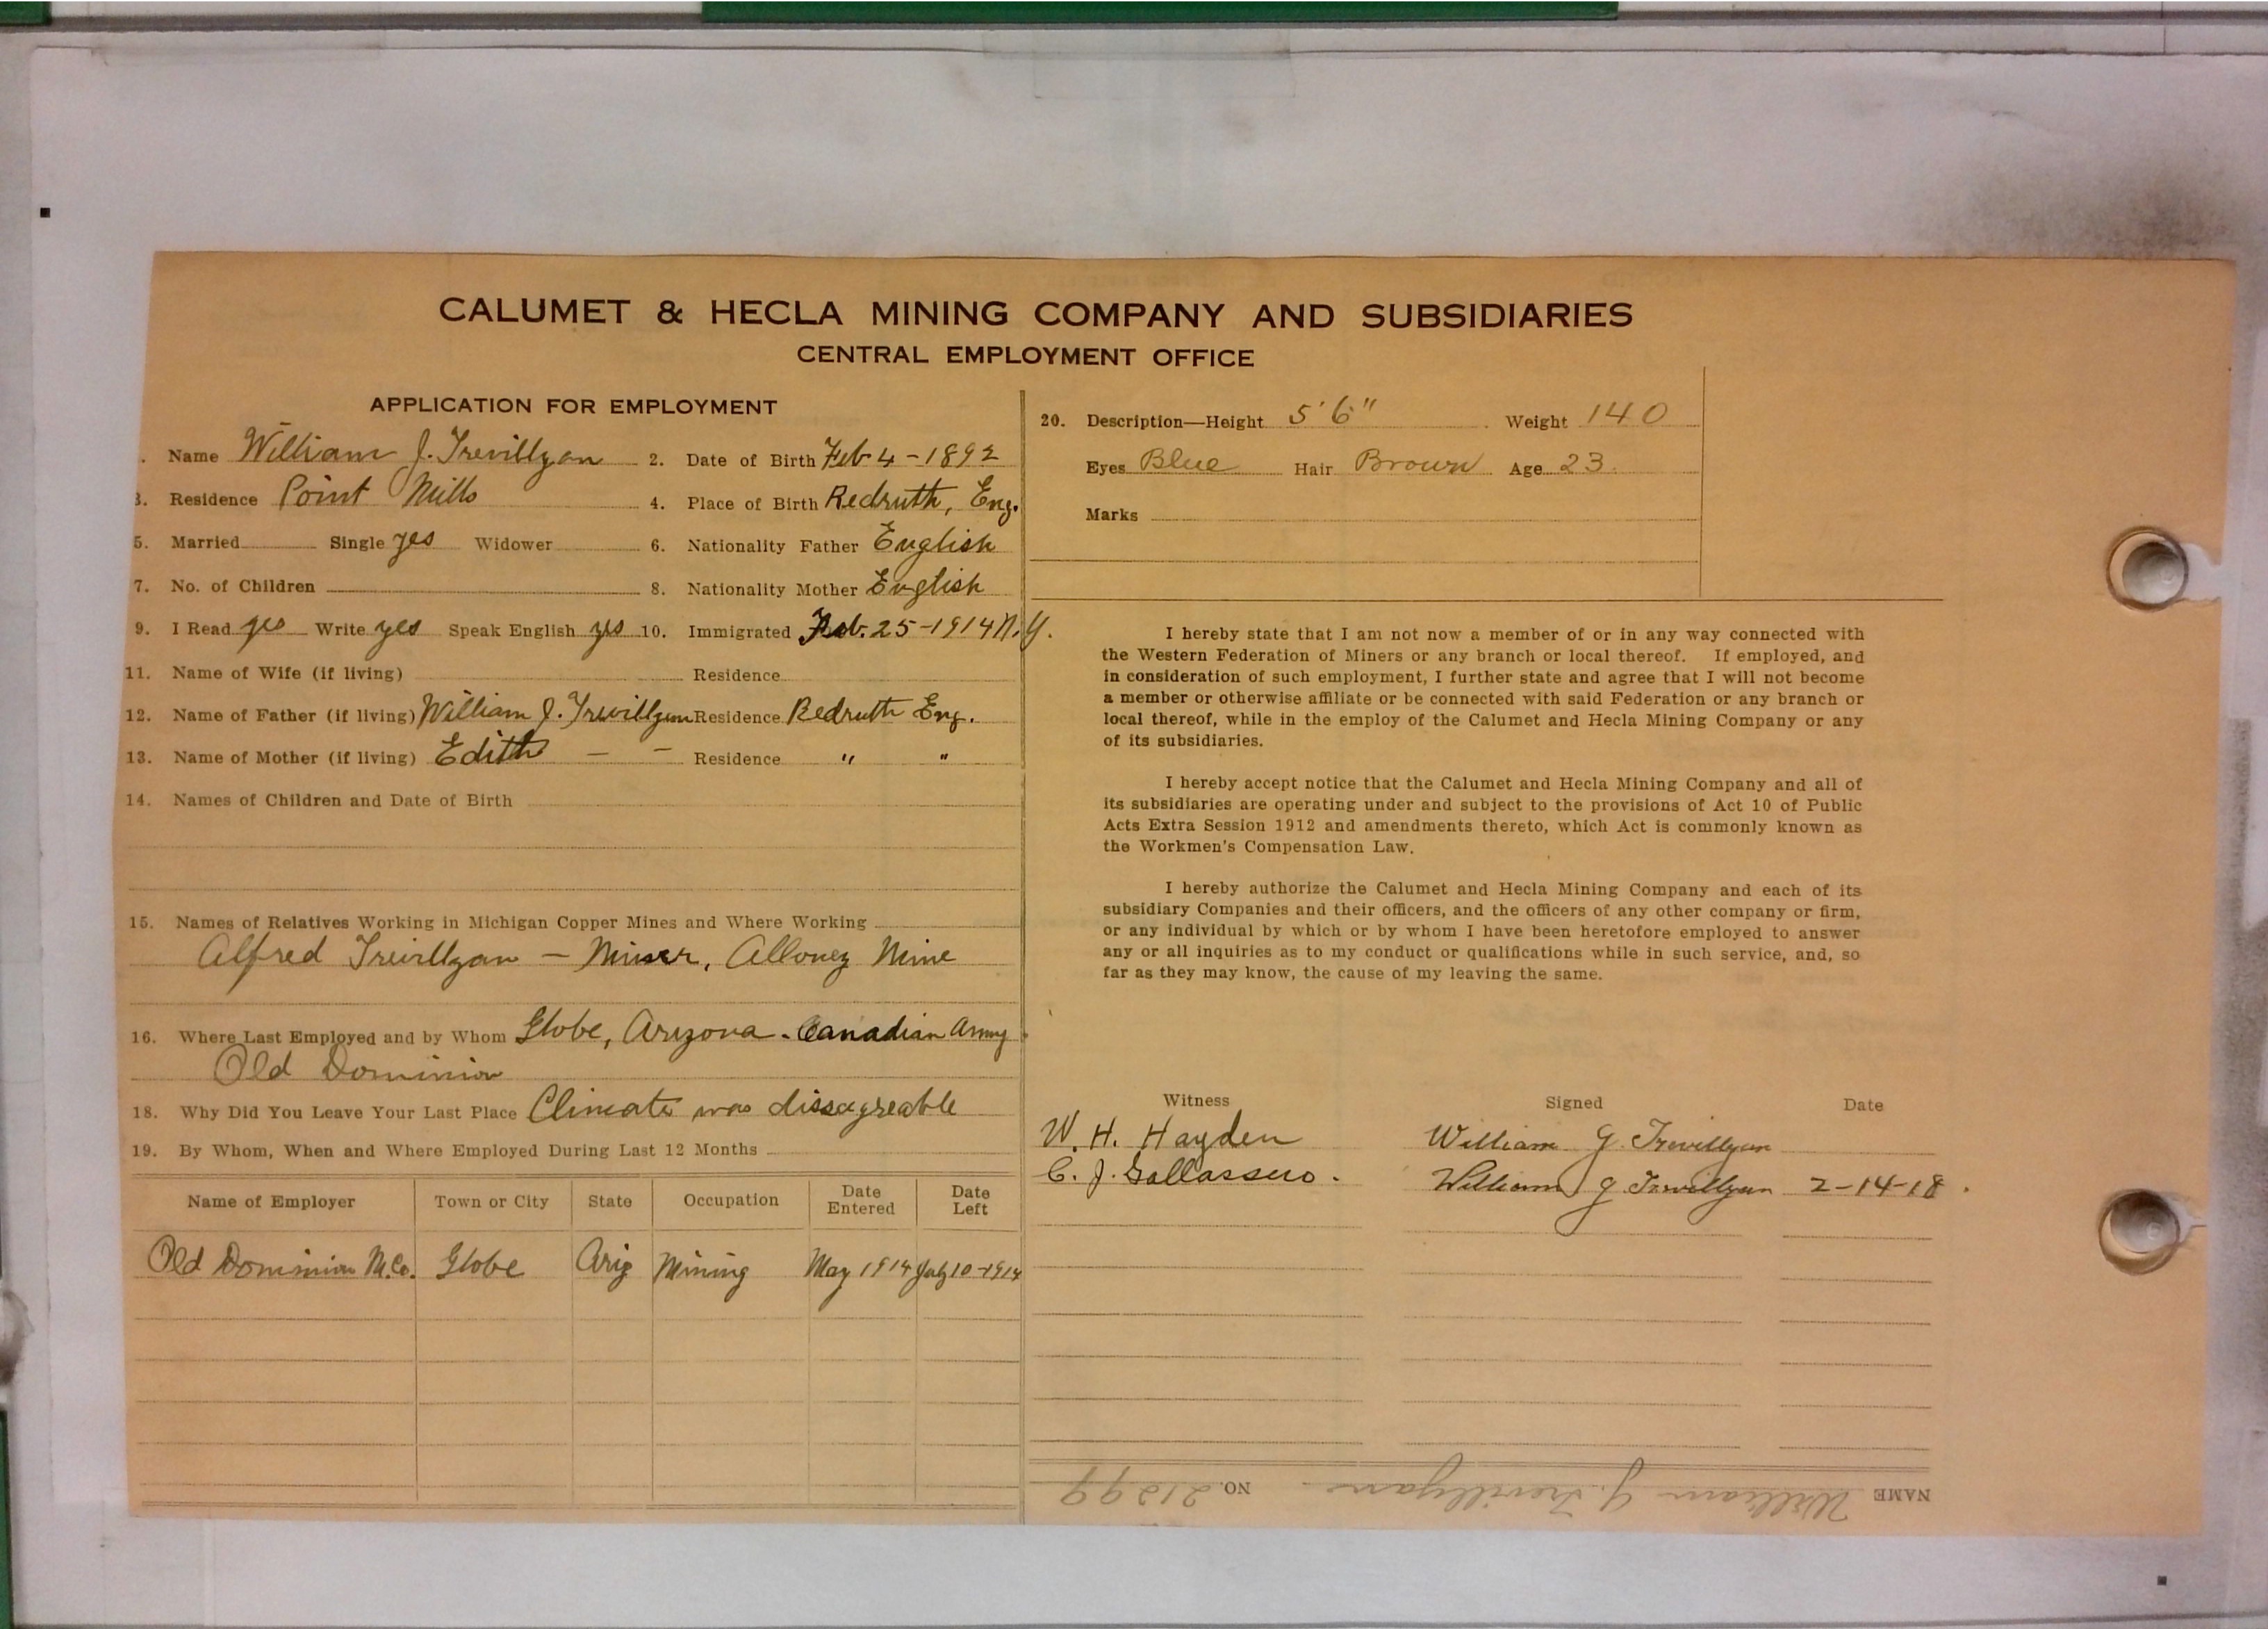 CALUMET & HECLA MINING COMPANY AND SUBSIDIARIES
CENTRAL EMPLOYMENT OFFICE
APPLICATION FOR EMPLOYMENT
. Name William J. Trevillyan 2. Date of Birth Feb 4 - 1892
3. Residence Point Mills 4. Place of Birth Redruth, Eng.
5. Married Single yes Widower 6. Nationality Father English
7. No. of Children 8. Nationality Mother English
9. I Read yes Write yes Speak English yes 10. Immigrated Feb. 25-1914 N.Y.
11. Name of Wife (if living) Residence
12. Name of Father (if living) William J. Trevillyan Residence Redruth Eng.
13. Name of Mother (if living) Edith — — Residence " "
14. Names of Children and Date of Birth
15. Names of Relatives Working in Michigan Copper Mines and Where Working
Alfred Trevillyan — Miner, Allouez Mine
16. Where Last Employed and by Whom Globe, Arizona - Canadian Army
Old Dominion
18. Why Did You Leave Your Last Place Climate was dissagreable
19. By Whom, When and Where Employed During Last 12 Months
Name of Employer Town or City State Occupation Date Entered Date Left
Old Dominion M. Co. Globe Ariz Mining May 1914 July 10-1914
20. Description—Height 5' 6" Weight 140
Eyes Blue Hair Brown Age 23
Marks
I hereby state that I am not now a member of or in any way connected with
the Western Federation of Miners or any branch or local thereof. If employed, and
in consideration of such employment, I further state and agree that I will not become
a member or otherwise affiliate or be connected with said Federation or any branch or
local thereof, while in the employ of the Calumet and Hecla Mining Company or any
of its subsidiaries.
I hereby accept notice that the Calumet and Hecla Mining Company and all of
its subsidiaries are operating under and subject to the provisions of Act 10 of Public
Acts Extra Session 1912 and amendments thereto, which Act is commonly known as
the Workmen's Compensation Law.
I hereby authorize the Calumet and Hecla Mining Company and each of its
subsidiary Companies and their officers, and the officers of any other company or firm,
or any individual by which or by whom I have been heretofore employed to answer
any or all inquiries as to my conduct or qualifications while in such service, and, so
far as they may know, the cause of my leaving the same.
Witness Signed Date
W. H. Hayden William J. Trevillyan
C. J. Gallassero. William J. Trevillyan 2-14-18.
NAME William J. Trevillyan. NO. 21299